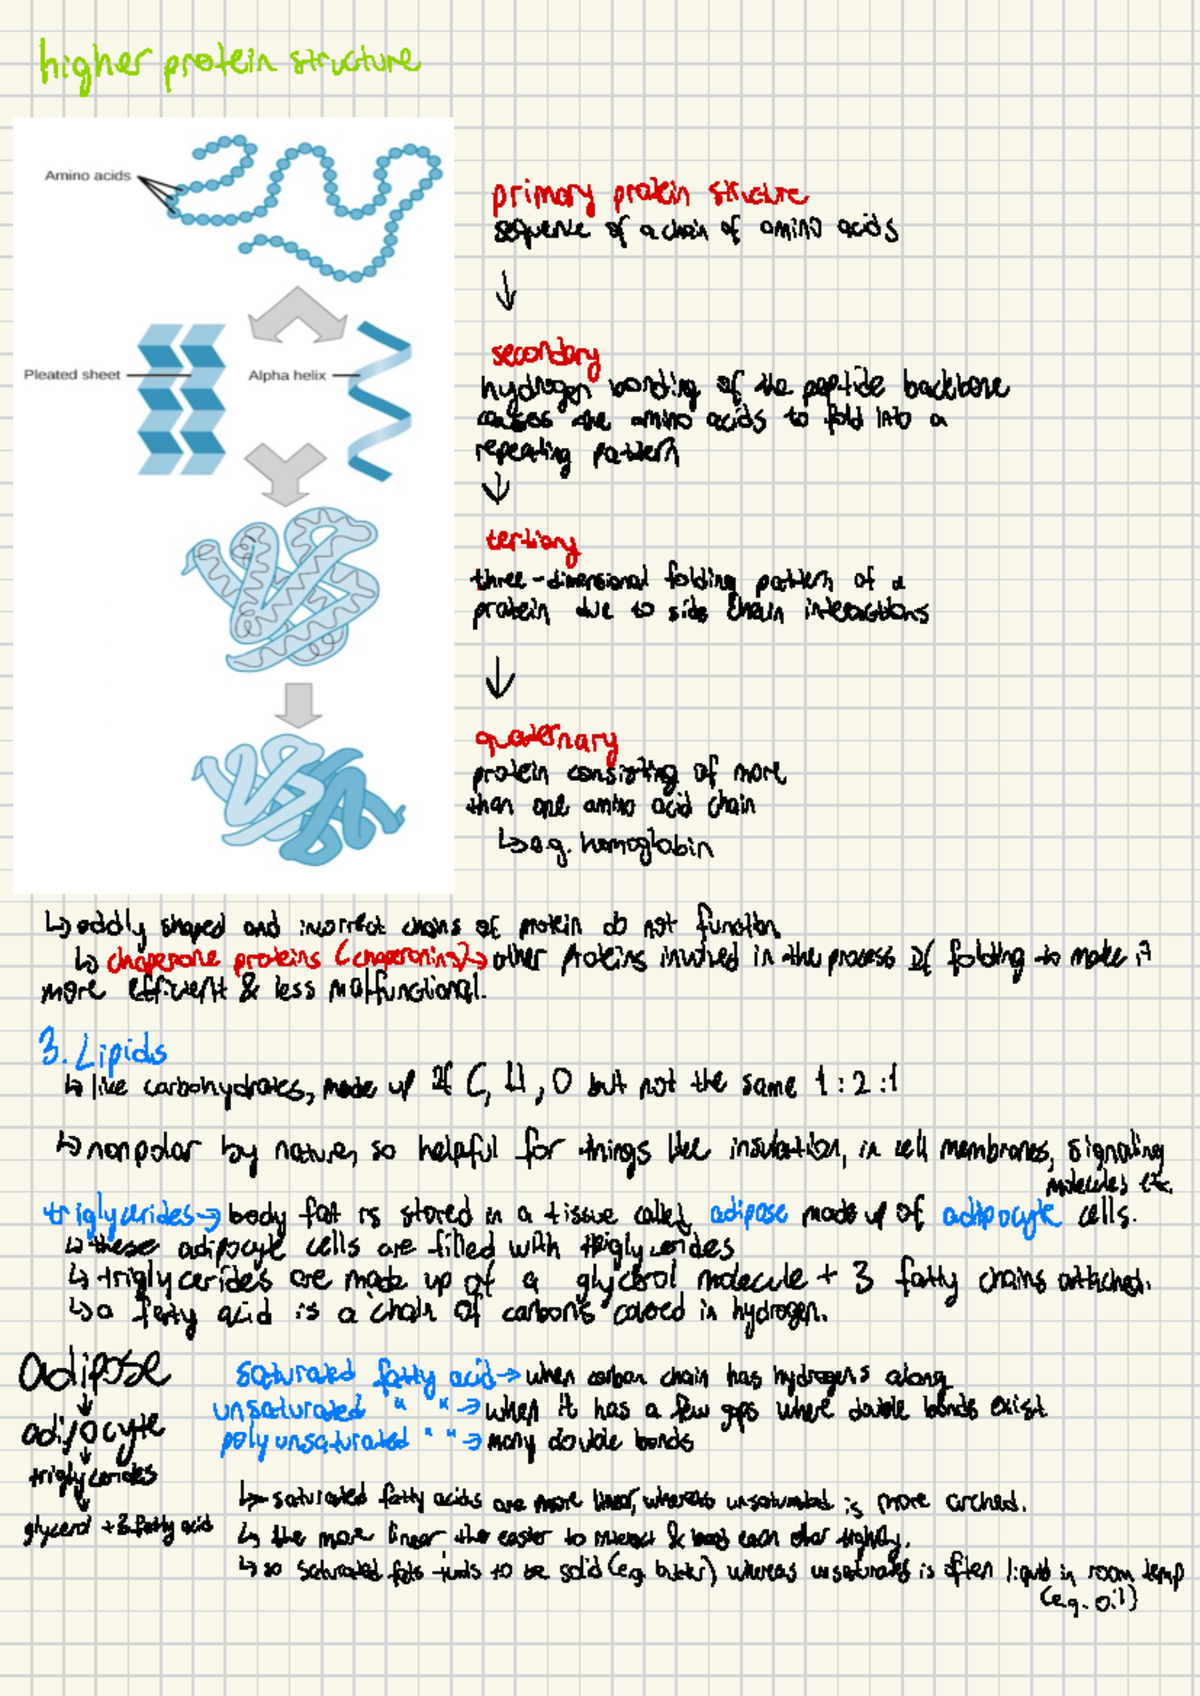 higher protein structure
Amino acids
primary protein structure
sequence of a chain of amino acids
↓
Pleated sheet
Alpha helix
secondary
hydrogen bonding of the peptide backbone
causes the amino acids to fold into a
repeating pattern
↓
tertiary
three-dimensional folding pattern of a
protein due to side chain interactions
↓
quaternary
protein consisting of more
than one amino acid chain
↳ e.g. hemoglobin
↳ oddly shaped and incorrect chains of protein do not function.
↳ chaperone proteins (chaperonins) → other proteins involved in the process of folding to make it
more efficient & less malfunctional.
3. Lipids
↳ like carbohydrates, made up of C, H, O but not the same 1:2:1
↳ nonpolar by nature, so helpful for things like insulation, in cell membranes, signaling
molecules etc.
triglycerides → body fat is stored in a tissue called adipose made up of adipocyte cells.
↳ these adipocyte cells are filled with triglycerides
↳ triglycerides are made up of a glycerol molecule + 3 fatty chains attached.
↳ a fatty acid is a chain of carbons covered in hydrogen.
adipose
↓
adipocyte
↓
triglycerides
↓
glycerol + 3 fatty acid
saturated fatty acid → when carbon chain has hydrogens along
unsaturated " " → when it has a few gaps where double bonds exist
polyunsaturated " " → many double bonds
↳ saturated fatty acids are more linear, whereas unsaturated is more arched.
↳ the more linear the easier to interact & each other tightly.
↳ so saturated fats tends to be solid (e.g. butter) whereas unsaturated is often liquid in room temp
(e.g. oil)